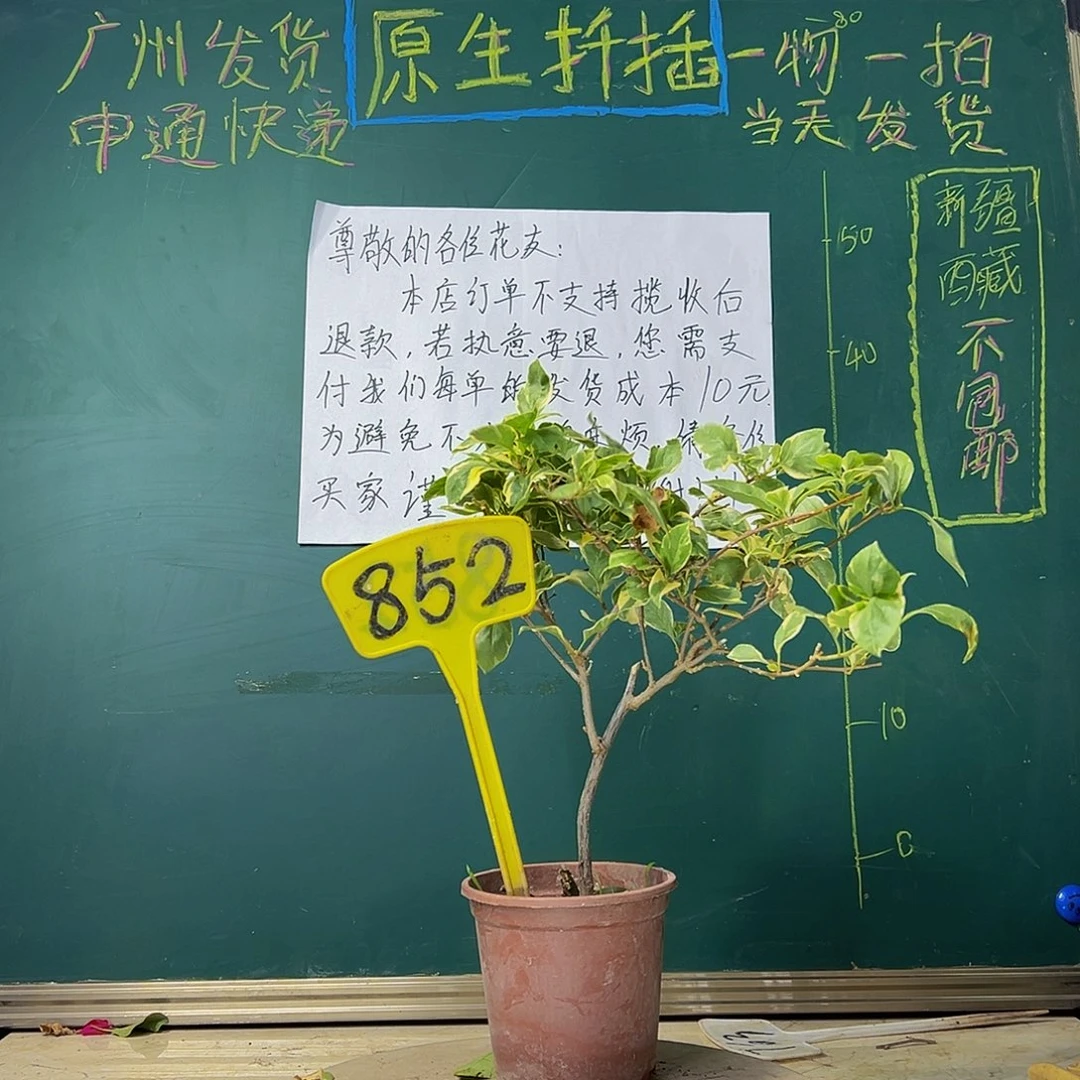 广州发货
申通快递
原生扦插
一物一拍
当天发货
尊敬的各位花友：
本店订单不支持揽收后
退款，若执意要退，您需支
付我们每单的发货成本10元
为避免不 烦 各位
买家谨
852
新疆
西藏
不包邮
50
40
10
0